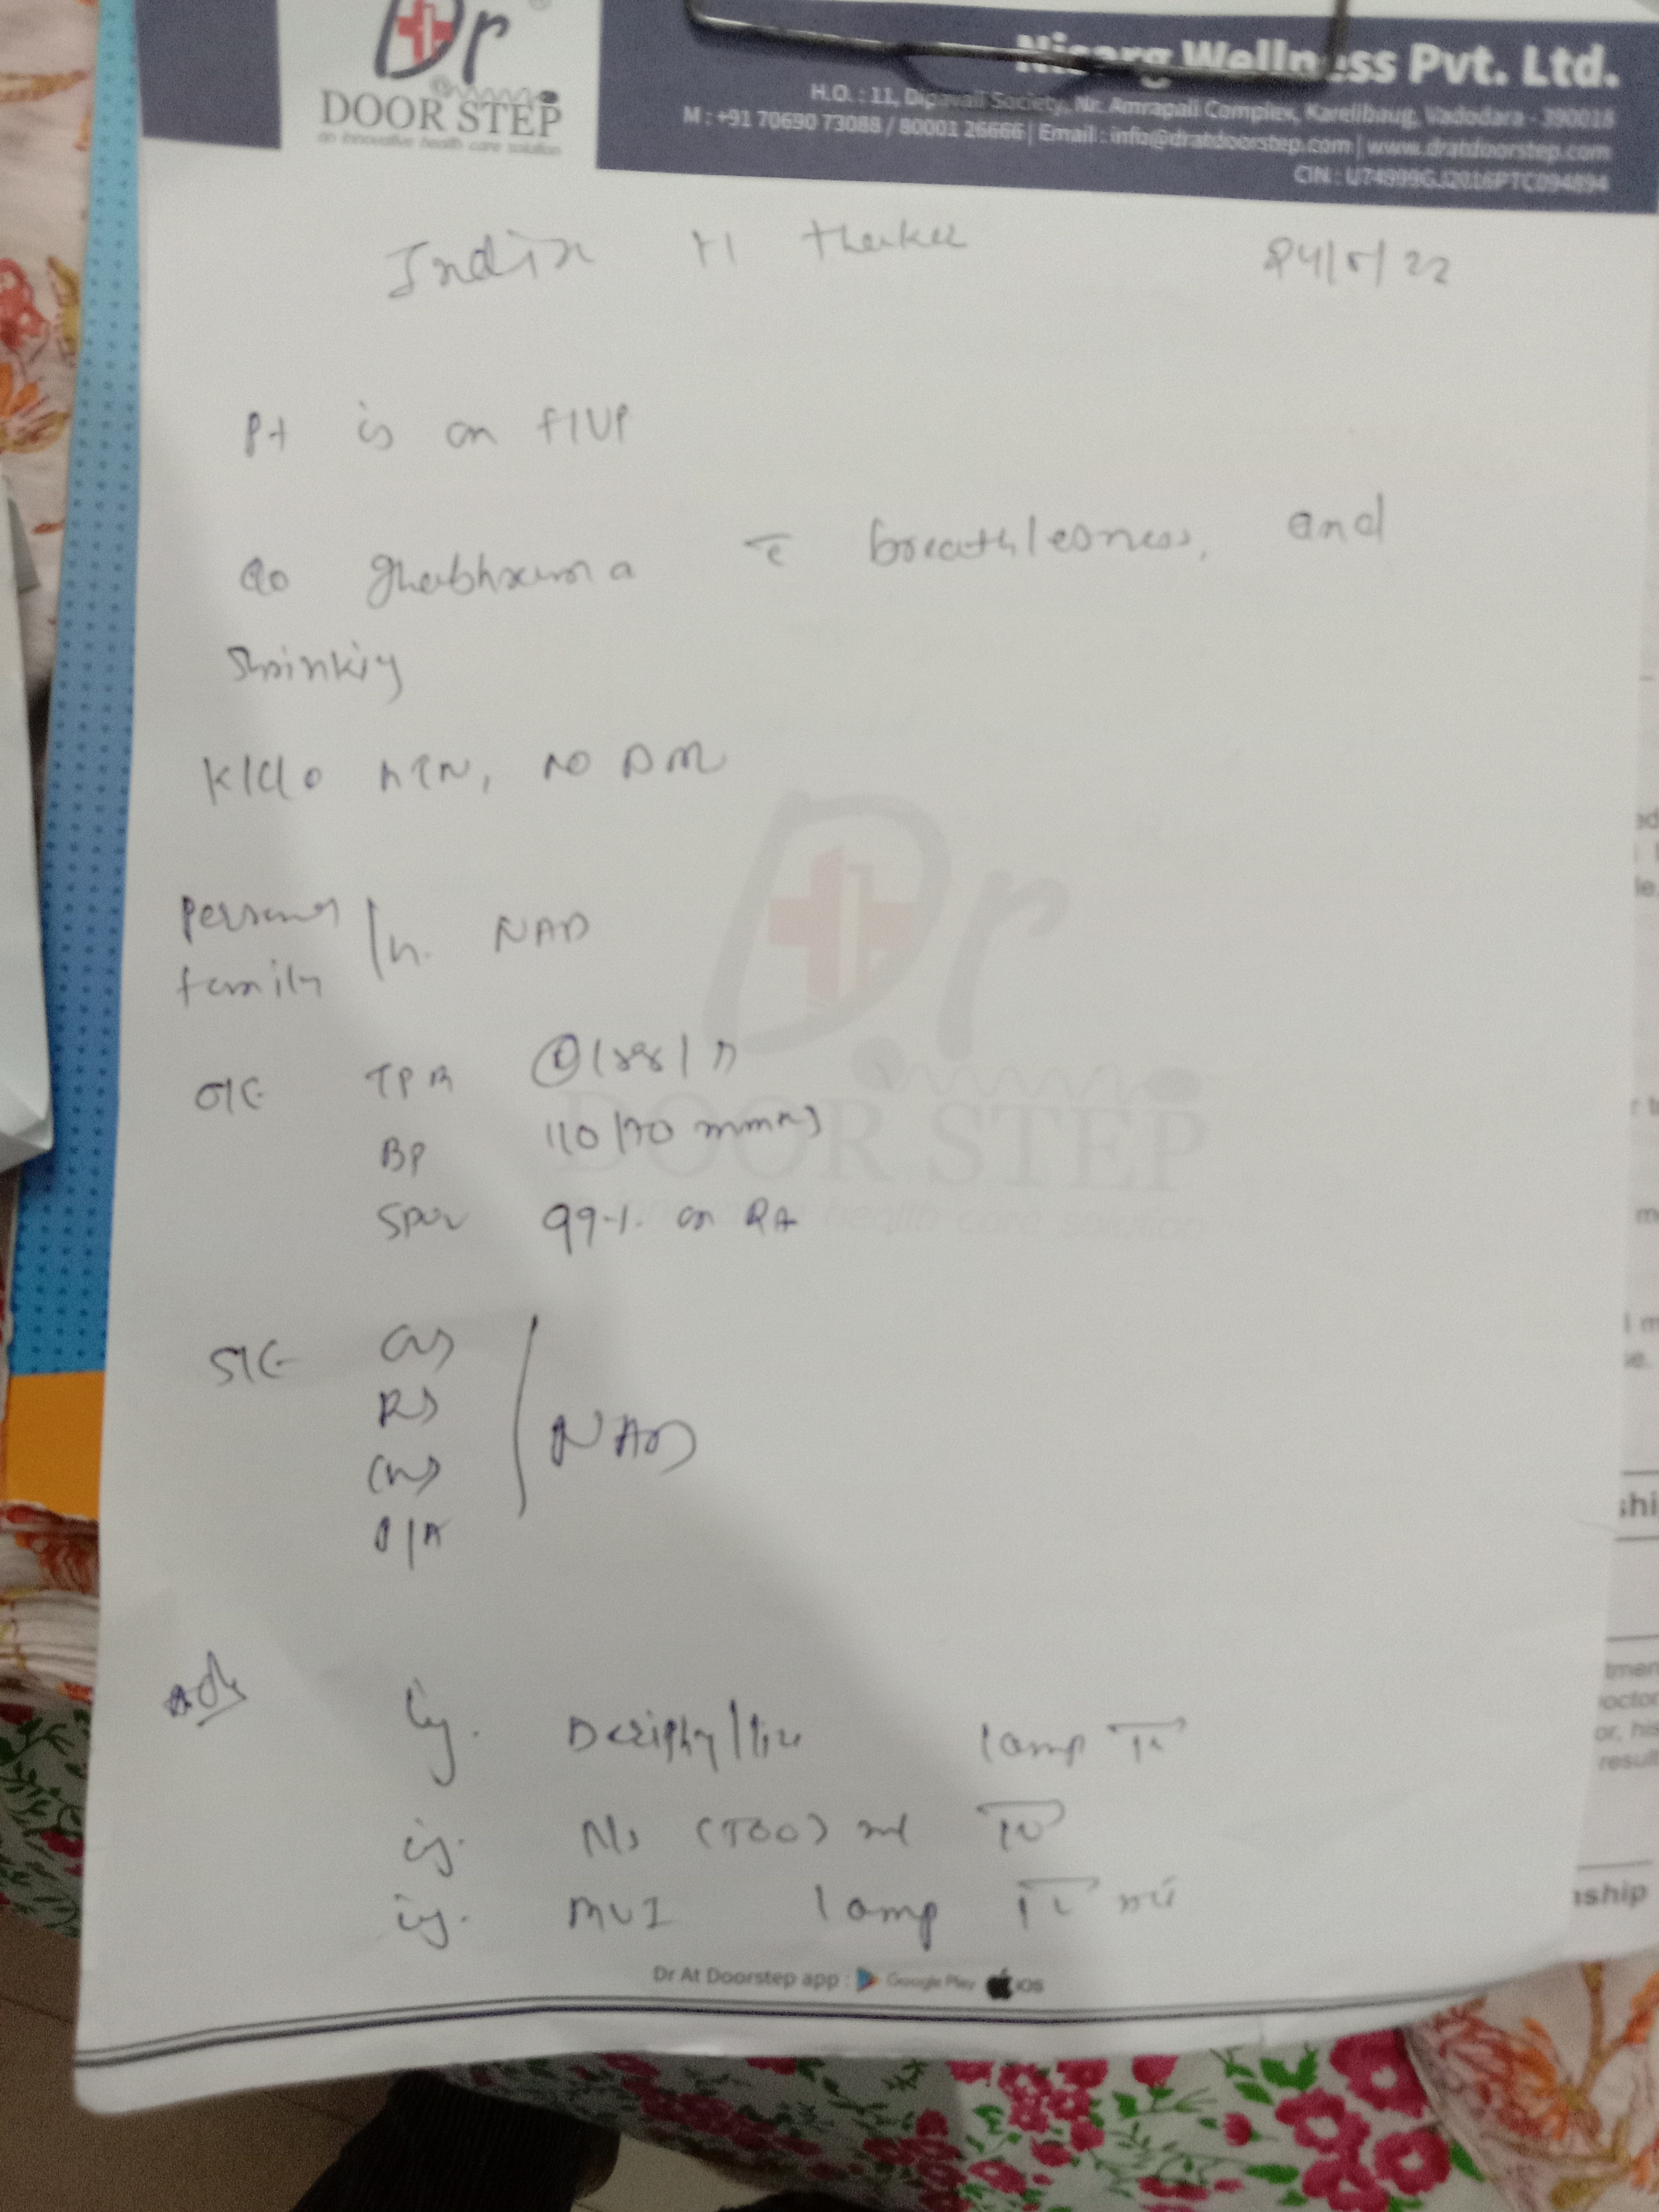 Dr
DOOR STEP
an innovative health care solution
Nisarg Wellness Pvt. Ltd.
H.O. : 11, Dipavali Society, Nr. Amrapali Complex, Karelibaug, Vadodara - 390018
M : +91 70690 73088 / 80001 26666 | Email : info@dratdoorstep.com | www.dratdoorstep.com
CIN : U74999GJ2016PTC094894
24/5/22
Pt is on f/up
breathlessness, and
K/C/O HTN, NO DM
Personal
family /h. NAD
O/E TPR
BP 110/70 mmHg
SPO2 99% on RA
S/E CVS
RS
CNS
P/A
NAD
Adv
inj. Deriphylline 1 amp IV
inj. NS (500) ml IV
inj. MVI 1 amp IV
Dr
DOOR STEP
health care solution
Dr At Doorstep app : Google Play iOS